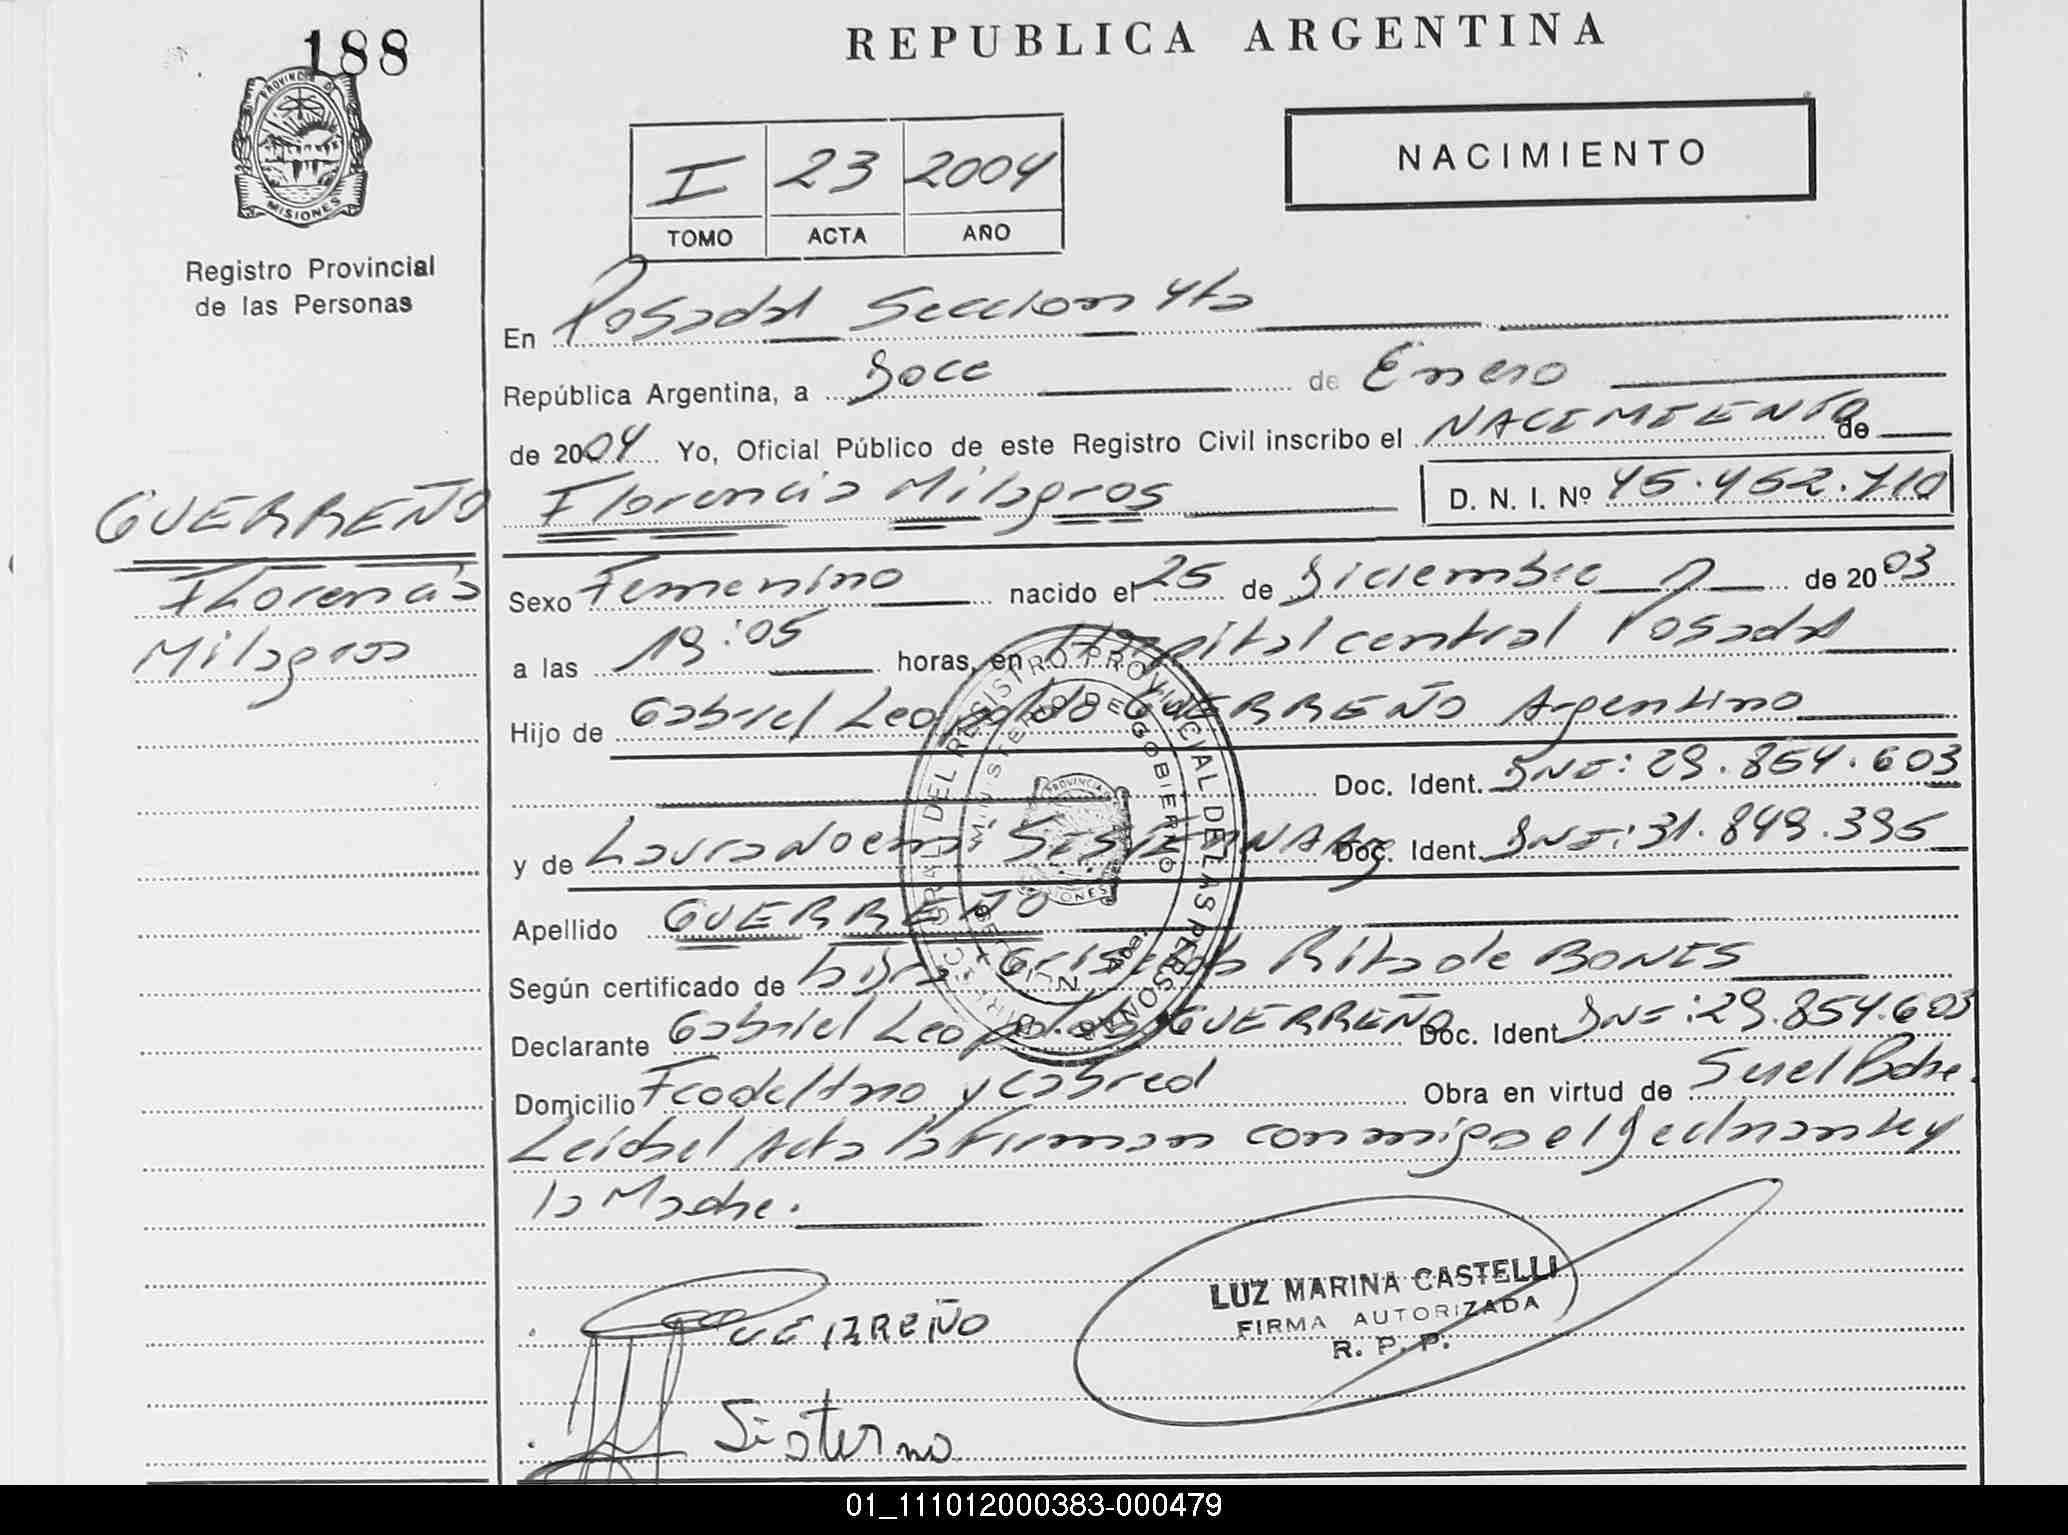 188
REPUBLICA ARGENTINA
PROVINCIA DE MISIONES
Registro Provincial
de las Personas
I 23 2004
TOMO ACTA AÑO
NACIMIENTO
En Posadas Seccion 4ta
República Argentina, a Doce de Enero
de 2004 Yo, Oficial Público de este Registro Civil inscribo el NACIMIENTO de
GUERREÑO
Florencia
Milagros
Florencia Milagros D. N. I. Nº 45.452.710
Sexo Femenino nacido el 25 de Diciembre de 2003
a las 19:05 horas, en Hospital central Posadas
Hijo de Gabriel Leopoldo GUERREÑO Argentino
Doc. Ident. DNI: 29.854.603
y de Laura Noemi SISTERNA Arg Doc. Ident. DNI: 31.849.395
Apellido GUERREÑO
Según certificado de Griselda Rita de BONIS
Declarante Gabriel Leopoldo GUERREÑO Doc. Ident DNI: 29.854.603
Domicilio y Cabred Obra en virtud de Ser el Padre.
Leida el Acta la Firman conmigo el Declarante y
la Madre.
GUERREÑO
LUZ MARINA CASTELLI
FIRMA AUTORIZADA
R. P. P.
Sisterna
01_111012000383-000479